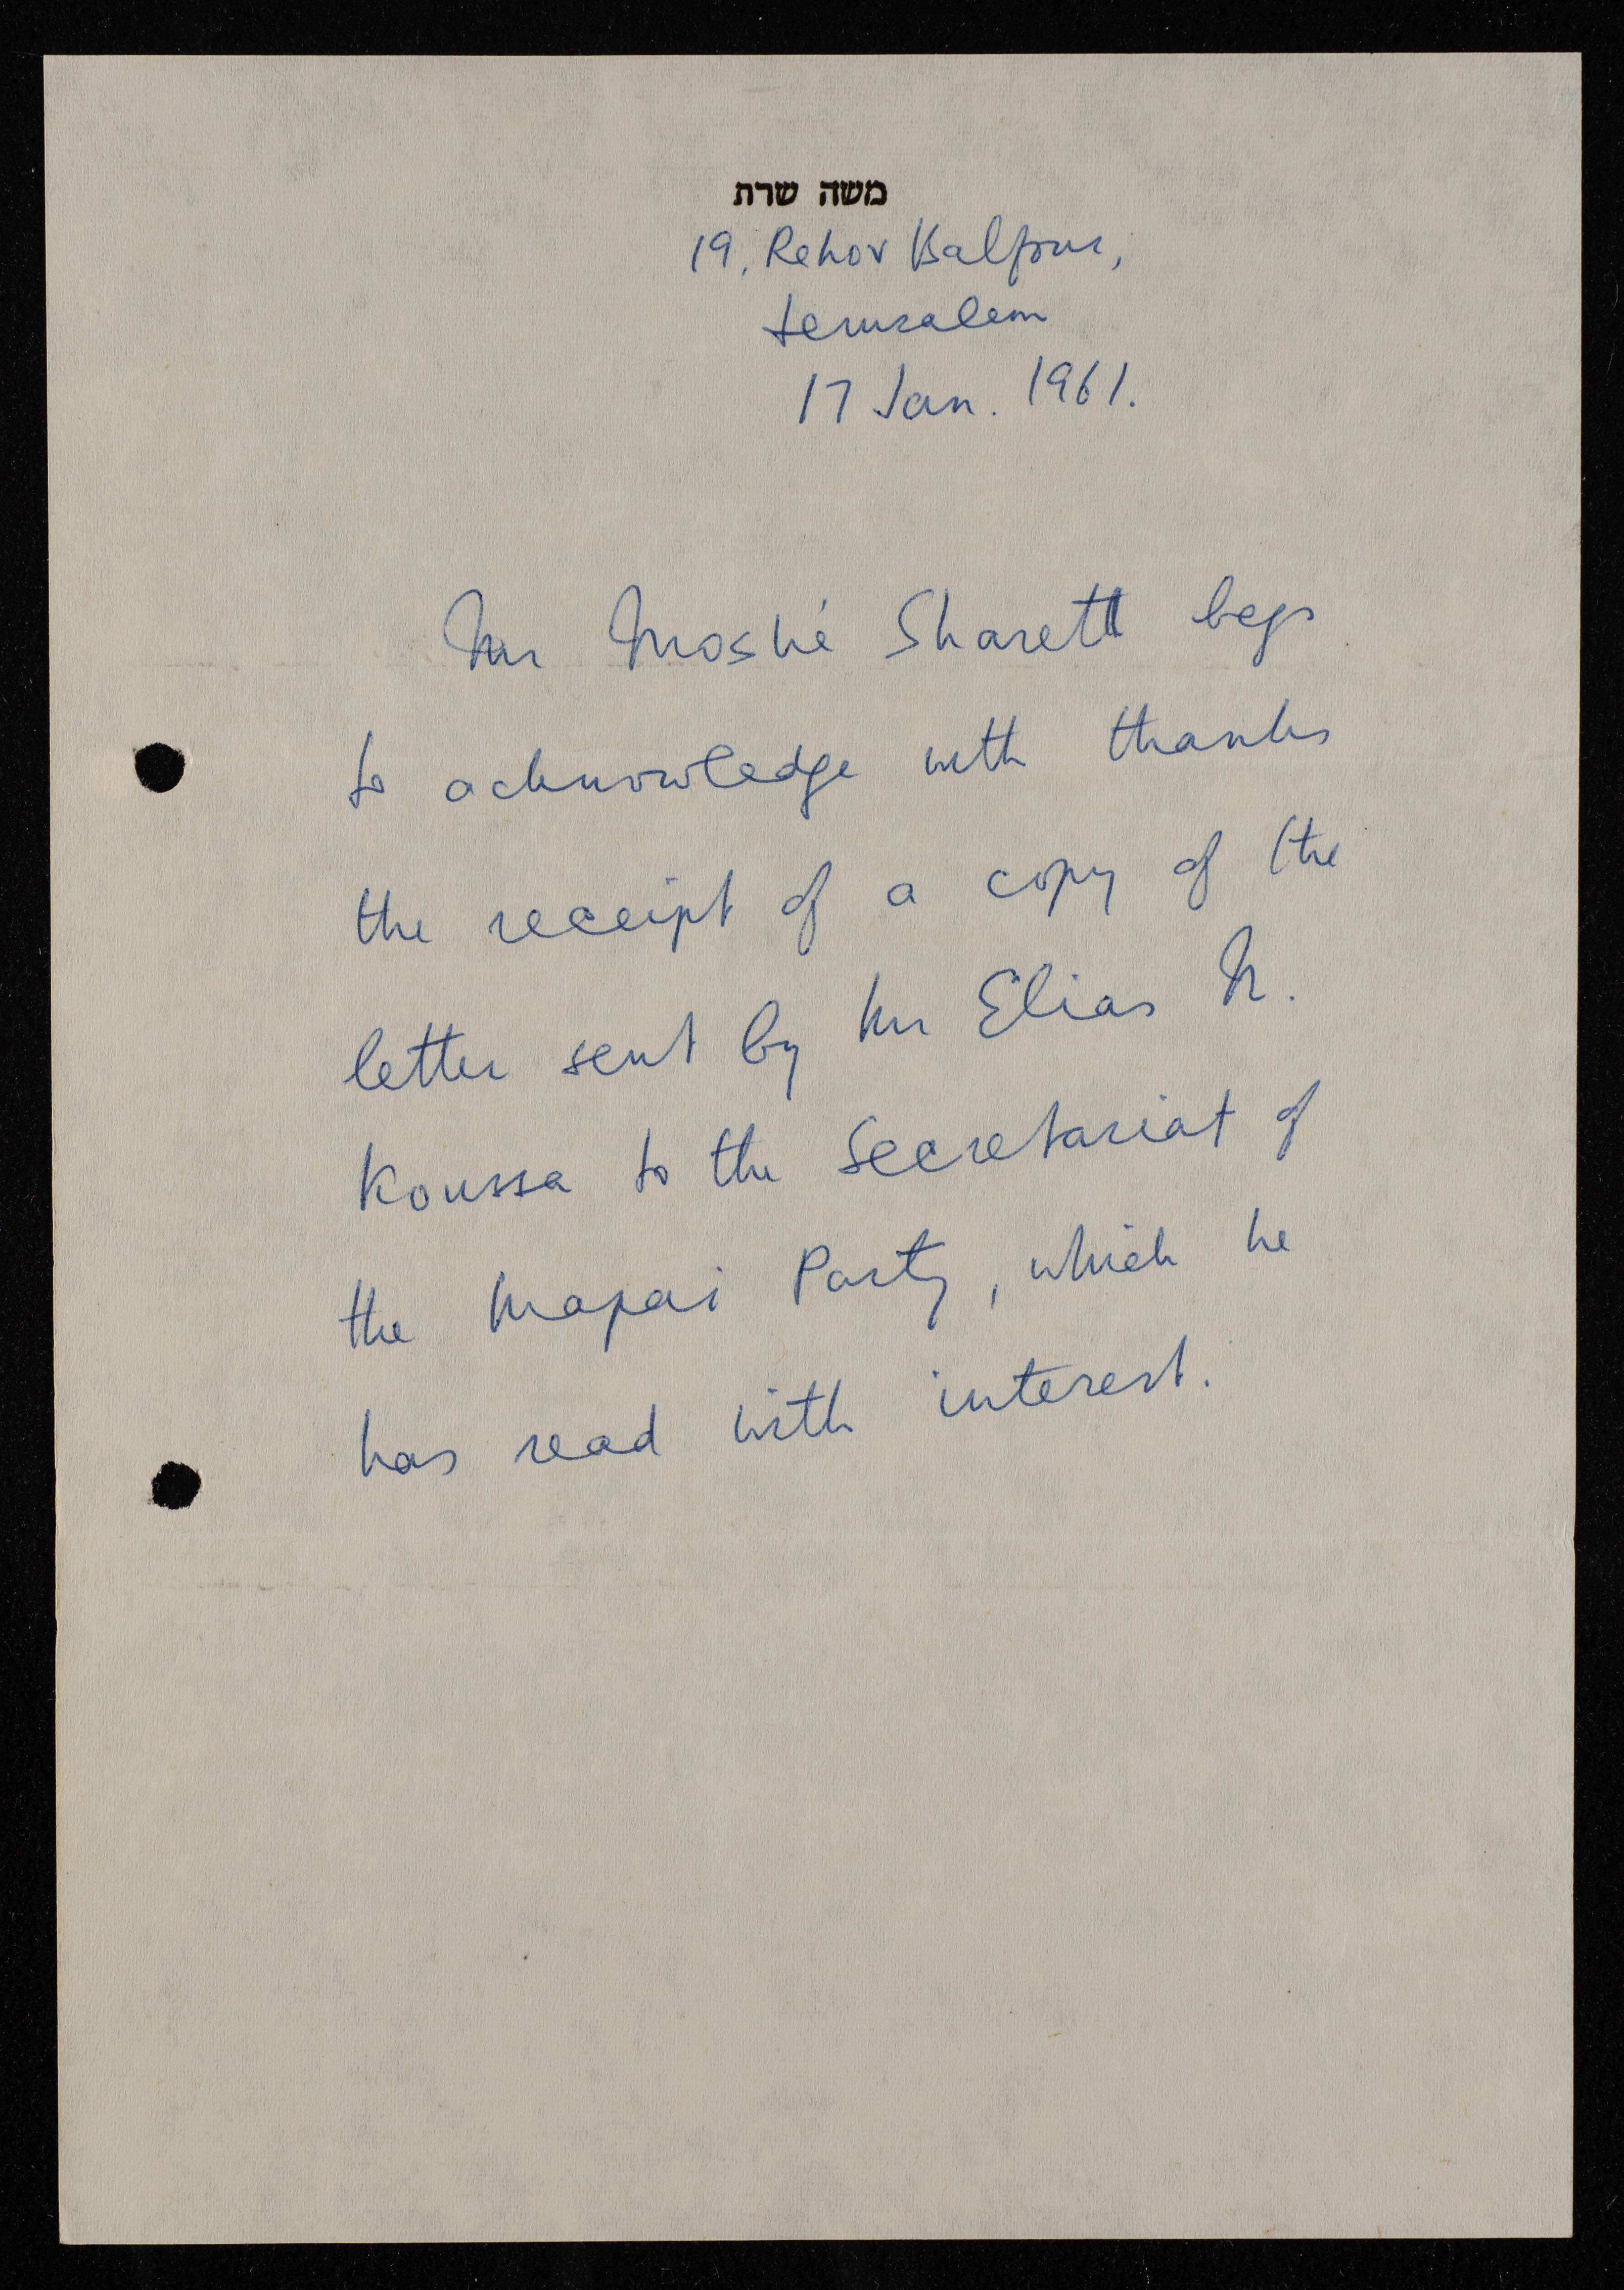 משה שרת
19, Rehov Balfour,
Jerusalem
17 Jan. 1961.
Mr Moshé Sharett begs
to acknowledge with thanks
the receipt of a copy of the
letter sent by Mr Elias N.
Koussa to the Secretariat of
the Mapai Party, which he
has read with interest.